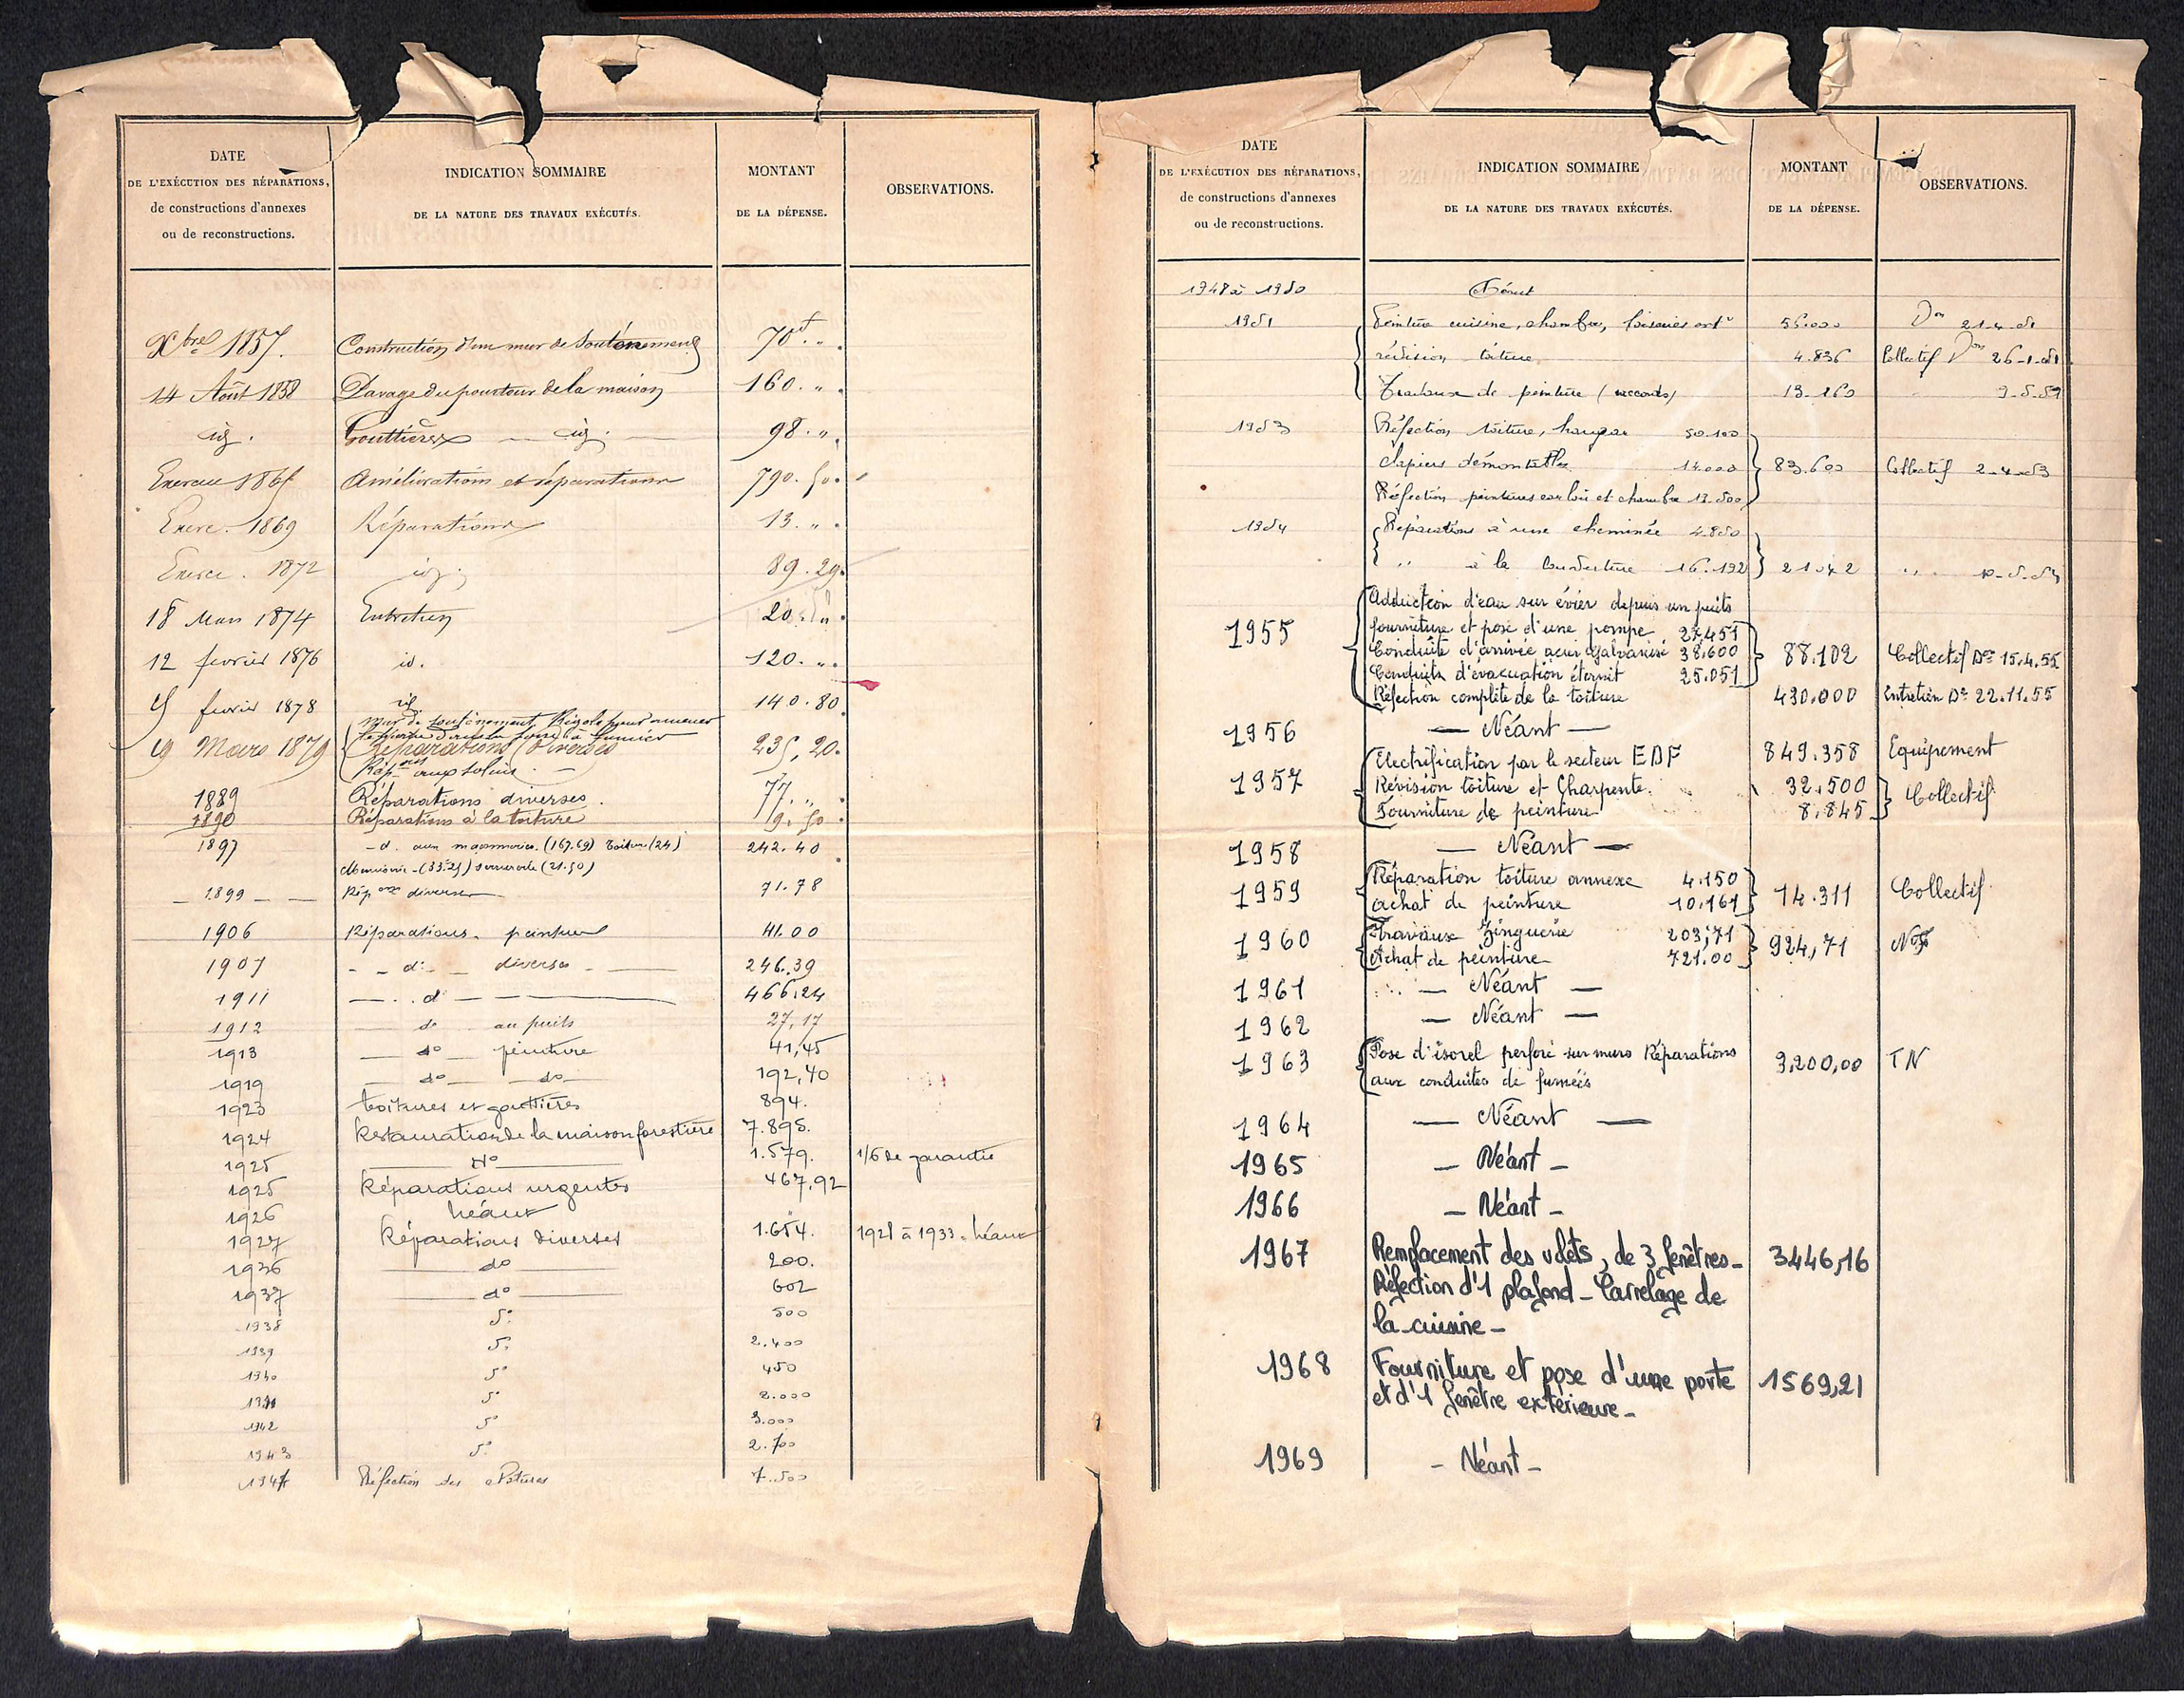 DATE
DE L'EXÉCUTION DES RÉPARATIONS,
de constructions d'annexes
ou de reconstructions.
INDICATION SOMMAIRE
DE LA NATURE DES TRAVAUX EXÉCUTÉS.
MONTANT
DE LA DÉPENSE.
OBSERVATIONS.
Xbre 1857. Construction d'un mur de Soutènement 70f. ".
14 Août 1858 Pavage du pourtour de la maison 160. ".
id. Gouttières — id. — 98. ".
Exercice 186 Améliorations et réparations 790. 50.
Exerc. 1869 Réparations 13. ".
Exerce. 1872 id. 89.29.
18 Mars 1874 Entretien 20.
12 février 1876 id. 120. ".
février 1878 id. 140.80.
mur de soutènement, Rigole pour amener
fumier
19 Mars 1879 Réparations diverses 235,20.
Répons aux volets
1889 Réparations diverses. 77. ".
1890 Réparations à la toiture 9.50.
1897 — d. aux maçonneries (167.69) toiture (24) 242.40
Menuiserie - (33.21) serrurerie (21.50)
1899 Répons diverses 71.78
1906 Réparations. peinture 41.00
1907 - - d: - diverses - 246.39
1911 — . . d — 466,24
1912 do au puits 27,17
1913 do peinture 41,45
1919 do do 192,40
1923 toitures et gouttières 894.
1924 Restauration de la maison forestière 7.895.
1925 do 1.579. 1/6 de garantie
1925 Réparations urgentes 467,92
1926 Néant
1927 Réparations diverses 1.654. 1928 à 1933. Néant
1936 do 200.
1937 do 602
1938 do 500
1939 do 2.400
1940 do 450
1941 do 2.000
1942 do 3.000
1943 do 2.700
1947 Réfection des clôtures 7.500
DATE
DE L'EXÉCUTION DES RÉPARATIONS,
de constructions d'annexes
ou de reconstructions.
INDICATION SOMMAIRE
DE LA NATURE DES TRAVAUX EXÉCUTÉS.
MONTANT
DE LA DÉPENSE.
OBSERVATIONS.
1948 à 1950 Néant
1951 Peinture cuisine, chambre, boiseries extre 55.000 Don 21-4-51
révision toiture 4.836 Collectif Don 26-1-51
Travaux de peinture (raccords) 13.160 " 9-5-51
1953 Réfection toiture, hangar 50.100
clapiers démontables 14.000 83.600 Collectif 2-4-53
Réfection peintures couloir et chambre 19.500
1954 Réparations à une cheminée 4.850
" à la couverture 16.192 21.042 " 10-5-54
Adduction d'eau sur évier depuis un puits
1955 fourniture et pose d'une pompe 24.451
Conduite d'arrivée acier galvanisé 38.600 88.102 Collectif Don 15.4.55
Conduite d'évacuation éternit 25.051
Réfection complète de la toiture 430.000 Entretien Don 22.11.55
1956 — Néant —
Electrification par le secteur EDF 849.358 Equipement
1957 Révision toiture et Charpente 32.500 Collectif
Fourniture de peinture 8.845
1958 — Néant —
1959 Réparation toiture annexe 4.150
achat de peinture 10.161 14.311 Collectif
1960 Travaux Zinguerie 203,71
Achat de peinture 721.00 924,71
1961 — Néant —
1962 — Néant —
1963 Pose d'isorel perforé sur murs Réparations 9,200,00 TN
aux conduites de fumées
1964 — Néant —
1965 — Néant —
1966 — Néant —
1967 Remplacement des volets, de 3 fenêtres — 3446,16
Réfection d'1 plafond — Carrelage de
la cuisine —
1968 Fourniture et pose d'une porte 1569,21
et d'1 fenêtre extérieure —
1969 — Néant —